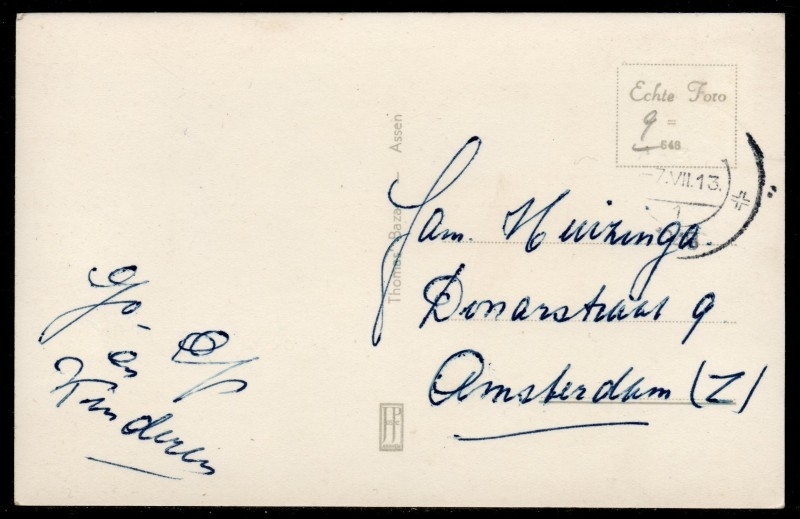 Echte Foto
9 =
548
7.VII.13.
1
Thomas Bazar — Assen
Fam. Huizinga.
Donarstraat 9
Amsterdam (Z)
Jo -
en
Kinderen
JP